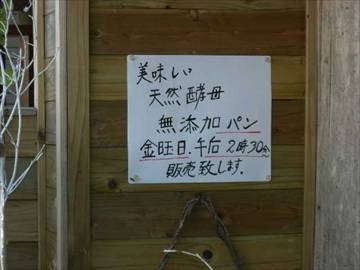 美味しい
天然酵母
無添加パン
金旺日.午后2時30分〜
販売致します.